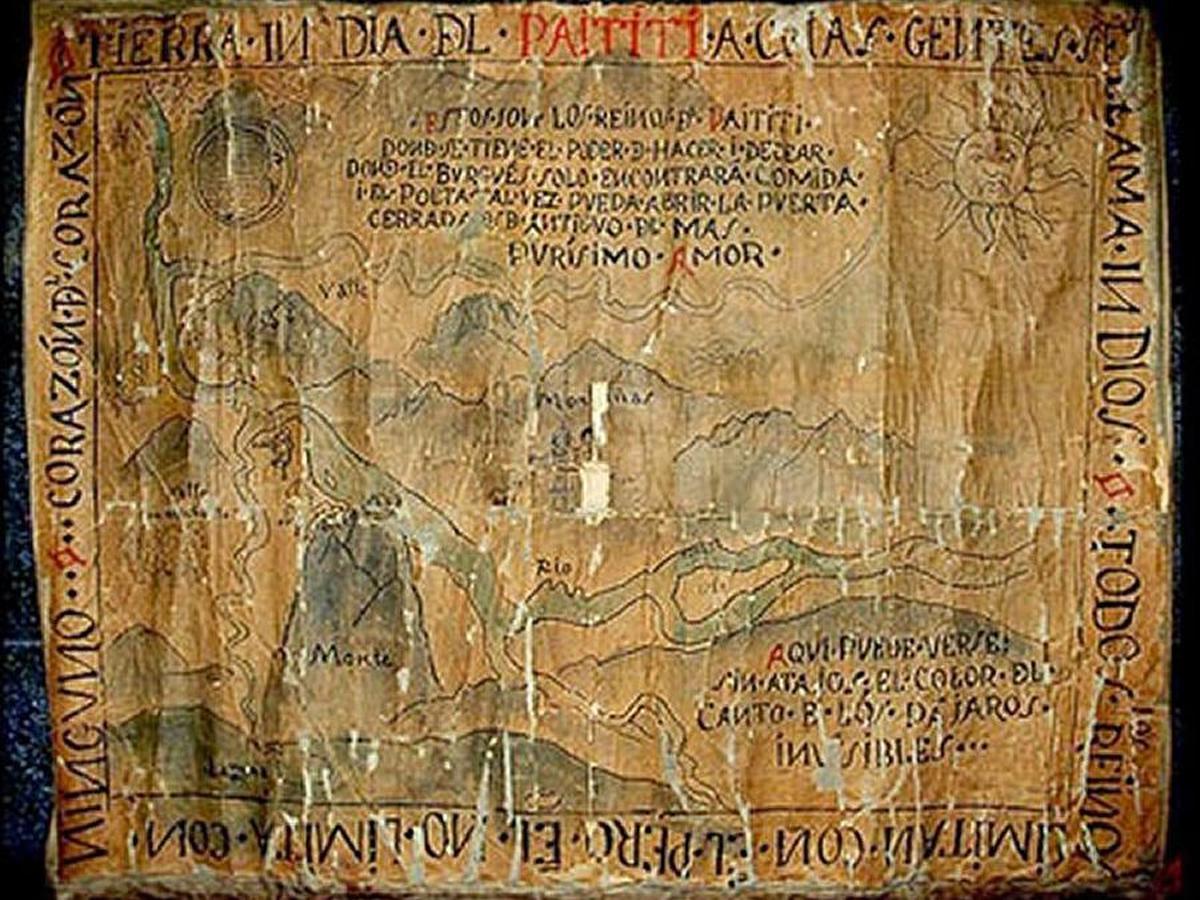 TIERRA·IN DIA·DL·PAITITI·A·CUIAS·GENTES·SE
LLAMA·INDIOS··TODOS los REINOS
LIMITAN·CON·EL·PERO·EL·NO·LIMITA·CON·
NINGUNO··CORAZÓN·DL·CORAZÓN
ESTOS·SON·LOS·REINOS·D·PAITITI·
DOND·SE·TIENE·EL·PODER·D·HACER·I·DESEAR·
DOND·EL·BURGUÉS·SOLO·ENCONTRARÁ·COMIDA·
I·EL·POETA·TAL·VEZ·PUEDA·ABRIR·LA·PUERTA·
CERRADA·DSD·ANTIGUO·DL·MAS·
PURÍSIMO·AMOR·
Valle
Montañas
Río
Monte
AQUI·PUEDE·VERSE:
SIN·ATAJOS·EL·COLOR·DL·
CANTO·D·LOS·PÁJAROS·
INVISIBLES···